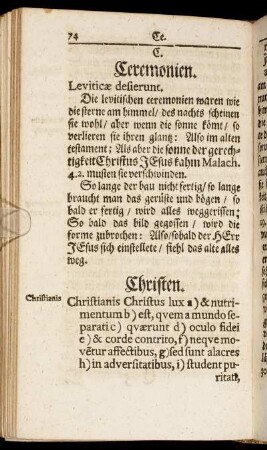 74 Ce.
C.
Ceremonien.
Leviticæ desierunt.
Die levitischen ceremonien waren wie
die sterne am himmel/ des nachts scheinen
sie wohl/ aber wenn die sonne kömt/ so
verlieren sie ihren glantz: Also im alten
testament; Als aber die sonne der gerech-
tigkeit Christus JEsus kahm Malach.
4. 2. musten sie verschwinden.
So lange der bau nicht fertig/ so lange
braucht man das gerüste und bögen/ so
bald er fertig/ wird alles weggerissen;
So bald das bild gegossen/ wird die
forme zubrochen: Also/ sobald der HErr
JEsus sich einstellete/ fiehl das alte alles
weg.
Christen.
Christianis
Christianis Christus lux a) & nutri-
mentum b) est, qvem a mundo se-
parati c) qværunt d) oculo fidei
e) & corde contrito, f) neqve mo-
vētur affectibus, g) sed sunt alacres
h) in adversitatibus, i) student pu-
ritati,